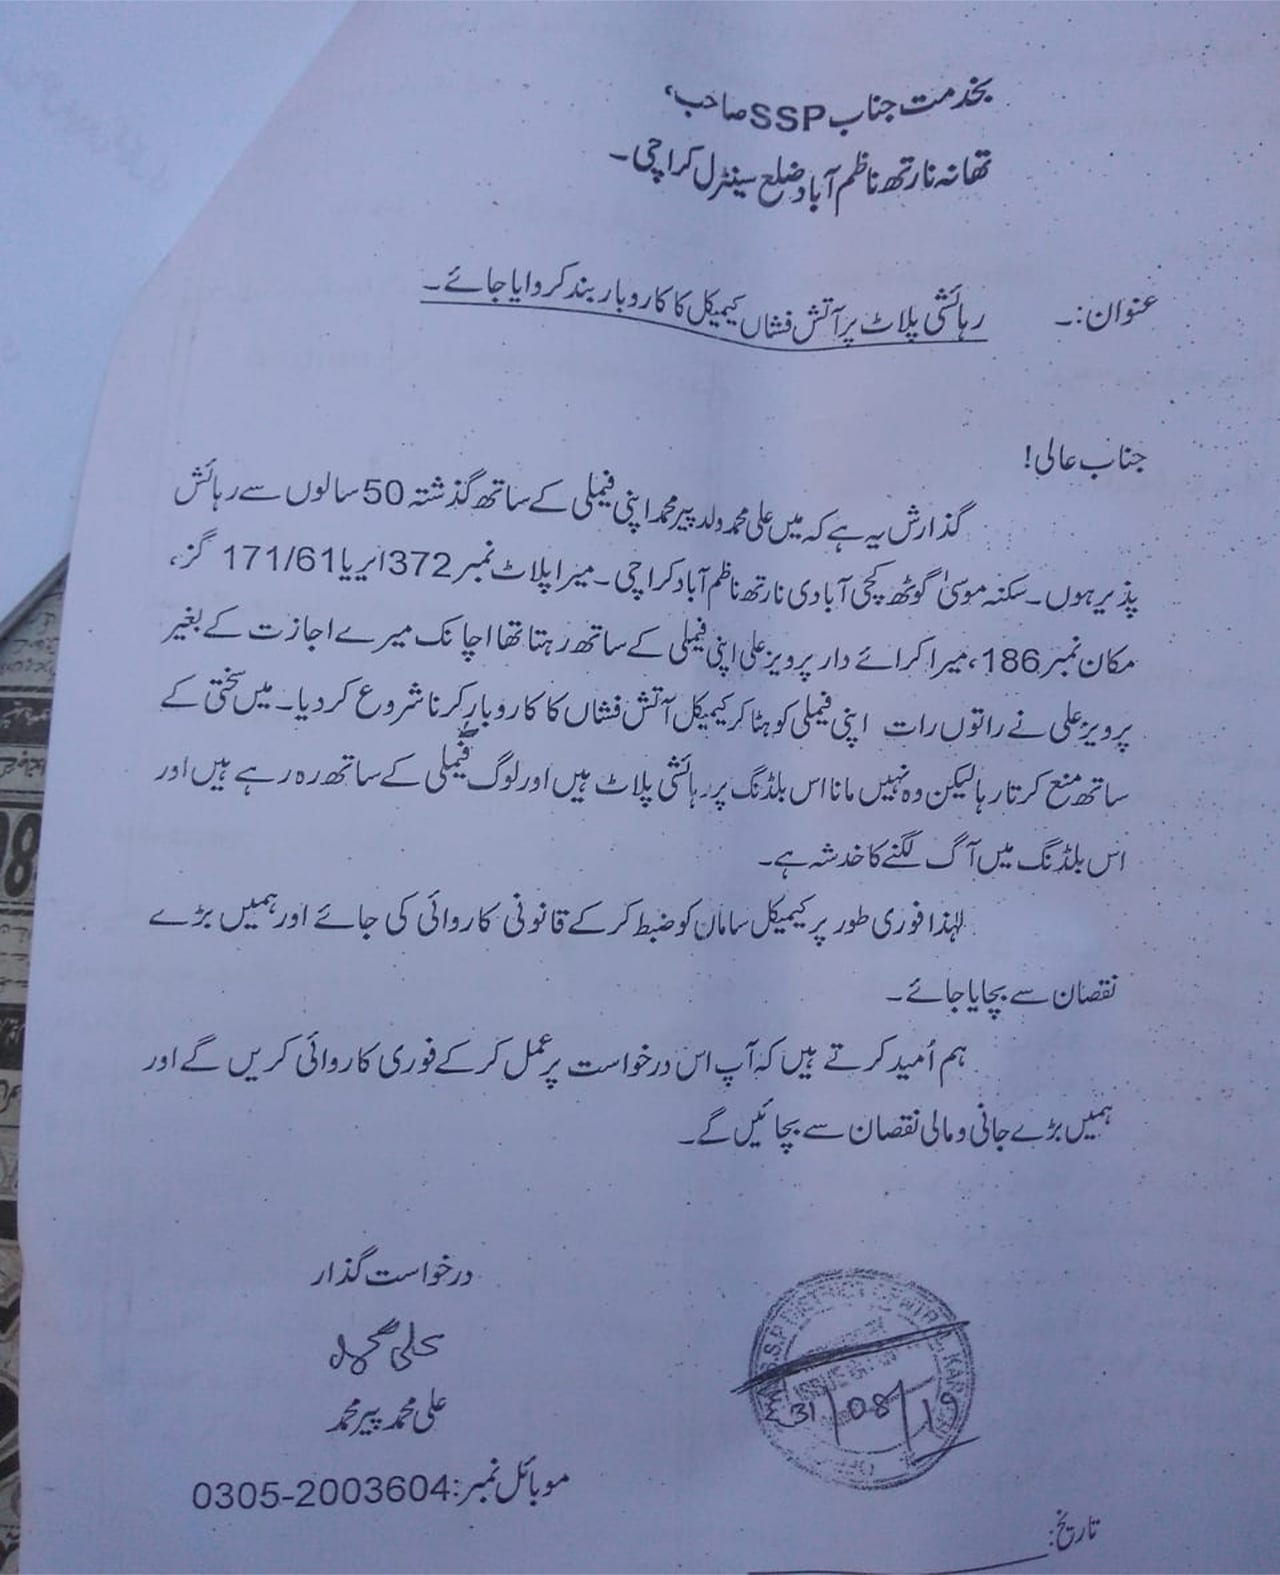 بخدمت جناب SSP صاحب،
تھانہ نارتھ ناظم آباد ضلع سینٹرل کراچی۔
عنوان:۔ رہائشی پلاٹ پر آتش فشاں کیمیکل کا کاروبار بند کروایا جائے۔
جناب عالی!
گذارش یہ ہے کہ میں علی محمد ولد پیر محمد اپنی فیملی کے ساتھ گذشتہ 50 سالوں سے رہائش
پذیر ہوں۔ سکنہ موسیٰ گوٹھ کچی آبادی نارتھ ناظم آباد کراچی۔ میرا پلاٹ نمبر 372 ایریا 171/61 گز،
مکان نمبر 186، میرا کرائے دار پرویز علی اپنی فیملی کے ساتھ رہتا تھا اچانک میرے اجازت کے بغیر
پرویز علی نے راتوں رات اپنی فیملی کو ہٹا کر کیمیکل آتش فشاں کا کاروبار کرنا شروع کر دیا۔ میں سختی کے
ساتھ منع کرتا رہا لیکن وہ نہیں مانا اس بلڈنگ پر رہائشی پلاٹ ہیں اور لوگ فیملی کے ساتھ رہ رہے ہیں اور
اس بلڈنگ میں آگ لگنے کا خدشہ ہے۔
لہٰذا فوری طور پر کیمیکل سامان کو ضبط کر کے قانونی کاروائی کی جائے اور ہمیں بڑے
نقصان سے بچایا جائے۔
ہم اُمید کرتے ہیں کہ آپ اس درخواست پر عمل کر کے فوری کاروائی کریں گے اور
ہمیں بڑے جانی و مالی نقصان سے بچائیں گے۔
درخواست گذار
علی محمد
علی محمد پیر محمد
موبائل نمبر: 0305-2003604
S.S.P DISTRICT CENTRAL, KAR
31/08/19
تاریخ: